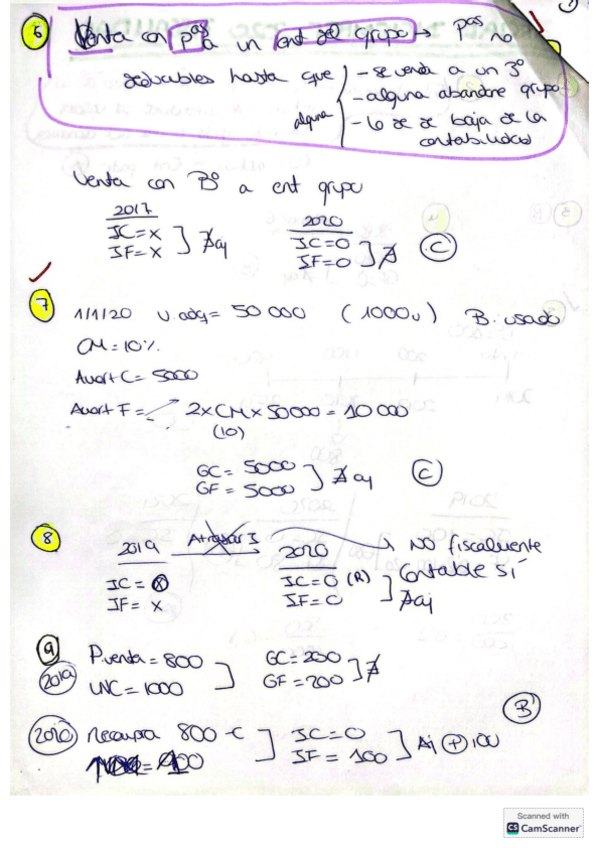 6 Venta con pas a un ent del grupo → pas no
deducibles hasta que
alguna
- se venda a un 3º
- alguna abandone grupo
- lo se de baja de la
contabilidad
Venta con Bº a ent grupo
2017
IC = X
IF = X
aj
2020
IC = 0
IF = 0
C
7 1/1/20 V. adq = 50 000 (1000u) B. usado
CM = 10%
Amort C = 5000
Amort F = 2 x CM x 50000 = 10 000
(10)
GC = 5000
GF = 5000
aj
C
8 2019 Atrasar I → 2020 → NO fiscalmente
Contable SI
IC =
IF = X
IC = 0 (R)
IF = 0
aj
9
2019
P. venta = 800
UNC = 1000
GC = 200
GF = 200
B
2020 Recompra 800 - C
IC = 0
IF = 100
Aj + 100
Scanned with
CS CamScanner